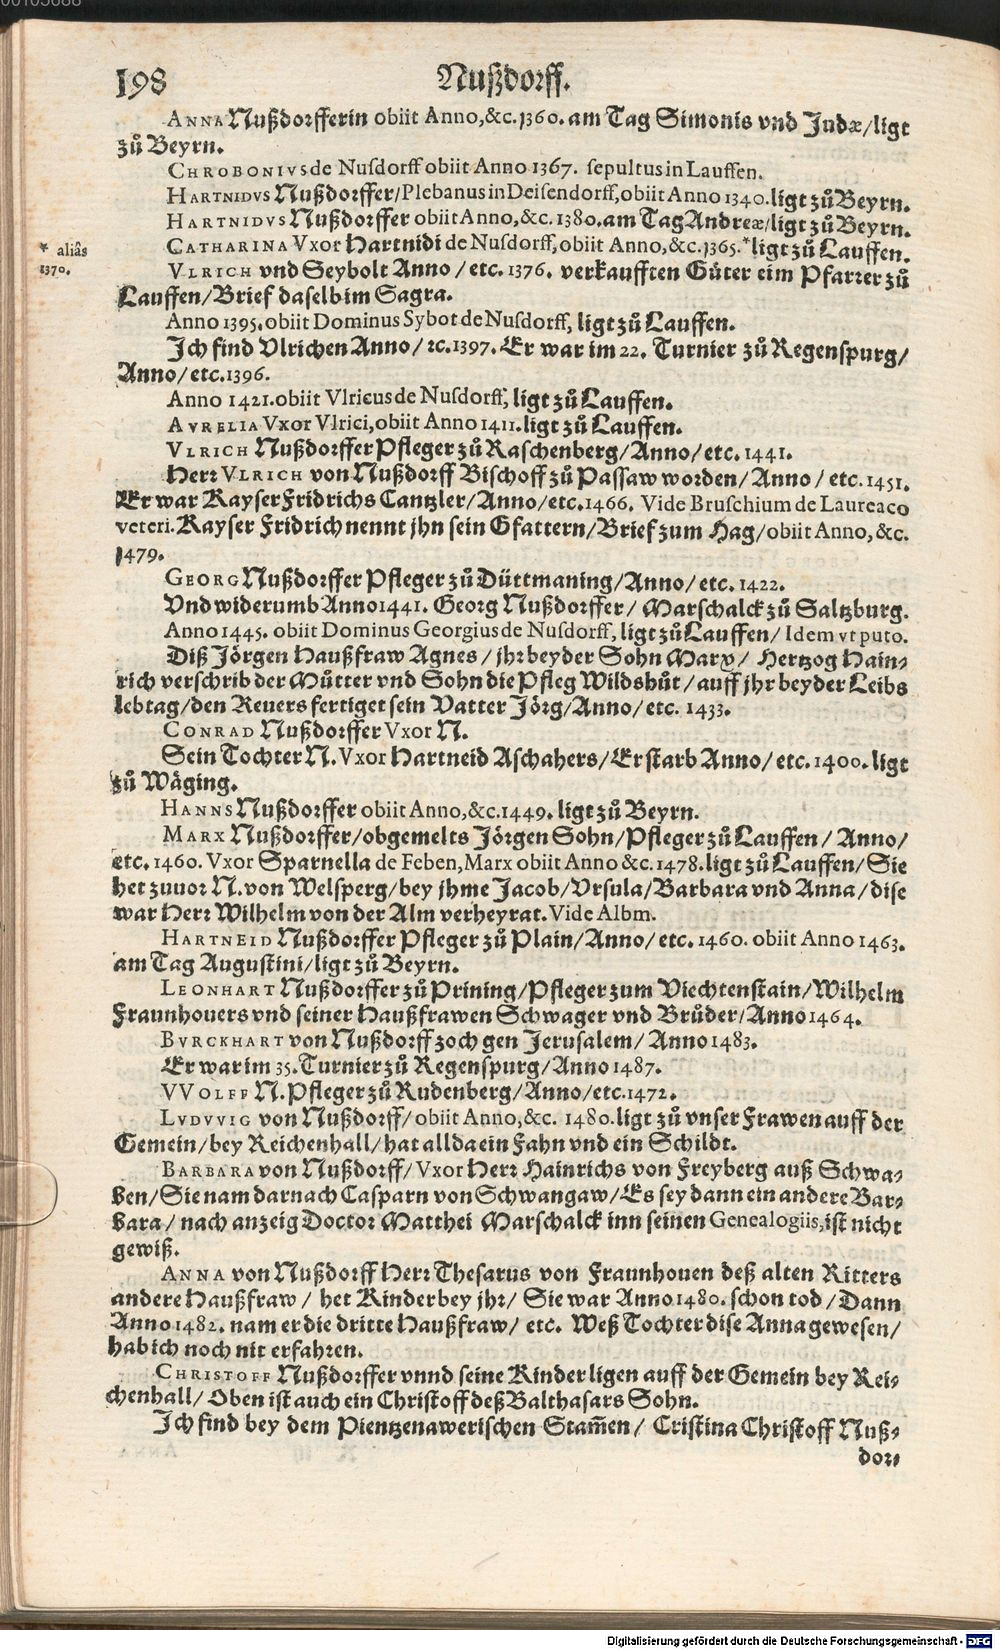 198 Nußdorff.
ANNA Nußdorfferin obiit Anno, &c. 1360. am Tag Simonis vnd Judæ/ligt
zů Beyrn.
CHROBONIVS de Nusdorff obiit Anno 1367. sepultus in Lauffen.
HARTNIDVS Nußdorffer/Plebanus in Deisendorff, obiit Anno 1340. ligt zů Beyrn.
HARTNIDVS Nußdorffer obiit Anno, &c. 1380. am Tag Andreæ/ligt zů Beyrn.
CATHARINA Vxor Hartnidi de Nusdorff, obiit Anno, &c. 1365.* ligt zů Lauffen.
* aliâs
1370.
VLRICH vnd Seybolt Anno/etc. 1376. verkaufften Güter eim Pfarrer zů
Lauffen/Brief daselb im Sagra.
Anno 1395. obiit Dominus Sybot de Nusdorff, ligt zů Lauffen.
Ich find Vlrichen Anno/ꝛc. 1397. Er war im 22. Turnier zů Regenspurg/
Anno/etc. 1396.
Anno 1421. obiit Vlricus de Nusdorff, ligt zů Lauffen.
AVRELIA Vxor Vlrici, obiit Anno 1411. ligt zů Lauffen.
VLRICH Nußdorffer Pfleger zů Raschenberg/Anno/etc. 1441.
Herr VLRICH von Nußdorff Bischoff zů Passaw worden/Anno/etc. 1451.
Er war Kayser Fridrichs Cantzler/Anno/etc. 1466. Vide Bruschium de Laureaco
veteri. Kayser Fridrich nennt jhn sein Gfattern/Brief zum Hag/obiit Anno, &c.
1479.
GEORG Nußdorffer Pfleger zů Düttmaning/Anno/etc. 1422.
Vnd widerumb Anno 1441. Georg Nußdorffer/Marschalck zů Saltzburg.
Anno 1445. obiit Dominus Georgius de Nusdorff, ligt zů Lauffen/Idem vt puto.
Diß Jörgen Haußfraw Agnes/jhr beyder Sohn Marx/Hertzog Hain-
rich verschrib der Mütter vnd Sohn die Pfleg Wildshůt/auff jhr beyder Leibs
lebtag/den Revers fertiget sein Vatter Jörg/Anno/etc. 1433.
CONRAD Nußdorffer Vxor N.
Sein Tochter N. Vxor Hartneid Aschahers/Er starb Anno/etc. 1400. ligt
zů Wäging.
HANNS Nußdorffer obiit Anno, &c. 1449. ligt zů Beyrn.
MARX Nußdorffer/obgemelts Jörgen Sohn/Pfleger zů Lauffen/Anno/
etc. 1460. Vxor Sparnella de Feben, Marx obiit Anno &c. 1478. ligt zů Lauffen/Sie
het zuuor N. von Welsperg/bey jhme Jacob/Vrsula/Barbara vnd Anna/dise
war Herr Wilhelm von der Alm verheyrat. Vide Albm.
HARTNEID Nußdorffer Pfleger zů Plain/Anno/etc. 1460. obiit Anno 1463.
am Tag Augustini/ligt zů Beyrn.
LEONHART Nußdorffer zů Prining/Pfleger zum Viechtenstain/Wilhelm
Fraunhouers vnd seiner Haußfrawen Schwager vnd Brüder/Anno 1464.
BVRCKHART von Nußdorff zoch gen Jerusalem/Anno 1483.
Er war im 35. Turnier zů Regenspurg/Anno 1487.
VVOLFF N. Pfleger zů Rudenberg/Anno/etc. 1472.
LVDVVIG von Nußdorff/obiit Anno, &c. 1480. ligt zů vnser Frawen auff der
Gemein/bey Reichenhall/hat allda ein Fahn vnd ein Schildt.
BARBARA von Nußdorff/Vxor Herr Hainrichs von Freyberg auß Schwa-
ben/Sie nam darnach Casparn von Schwangaw/Es sey dann ein andere Bar-
bara/nach anzeig Doctor Matthei Marschalck inn seinen Genealogiis, ist nicht
gewiß.
ANNA von Nußdorff Herr Thesarus von Fraunhouen deß alten Ritters
andere Haußfraw/het Kinder bey jhr/Sie war Anno 1480. schon tod/Dann
Anno 1482. nam er die dritte Haußfraw/etc. Weß Tochter dise Anna gewesen/
hab ich noch nit erfahren.
CHRISTOFF Nußdorffer vnnd seine Kinder ligen auff der Gemein bey Rei-
chenhall/Oben ist auch ein Christoff deß Balthasars Sohn.
Ich find bey dem Pientzenawerischen Stam̃en/Cristina Christoff Nuß-
dor-
Digitalisierung gefördert durch die Deutsche Forschungsgemeinschaft - DFG